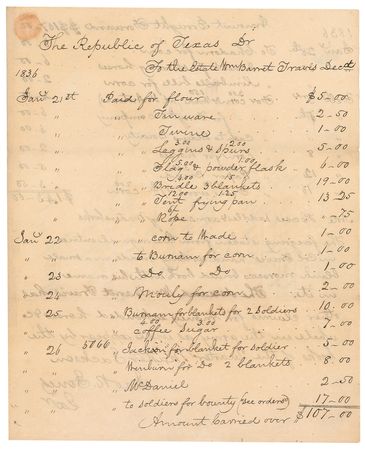 The Republic of Texas Dr
To the Estate Wm Barret Travis Decd
1836
Jany 21st Paid for flour $5-00
" Tin ware 2-50
" Twine 1-00
3.00 2.00
" Leggins & Spurs 5-00
5.00 1.00
" Flag & powder flask 6-00
4.00 15
" Bridle 3 blankets 19-00
12.00 1.25
" Tent frying pan 13-25
" Rope -25
Jany 22 " corn to Wrade 1-00
" to Burnam for corn 1-00
" 23 " Do Do 1-00
" 24 " Mouly for corn 2-00
" 25 " Burnam for blankets for 2 soldiers 10.00
4.00 3.00
" coffee Sugar 7-00
" 26 " Jackson for blanket for soldier 5-00
" Winburn for Do 2 blankets 8.00
" McDaniel 2-50
" to soldiers for bounty (see orders) 17-00
Amount carried over " $107-00